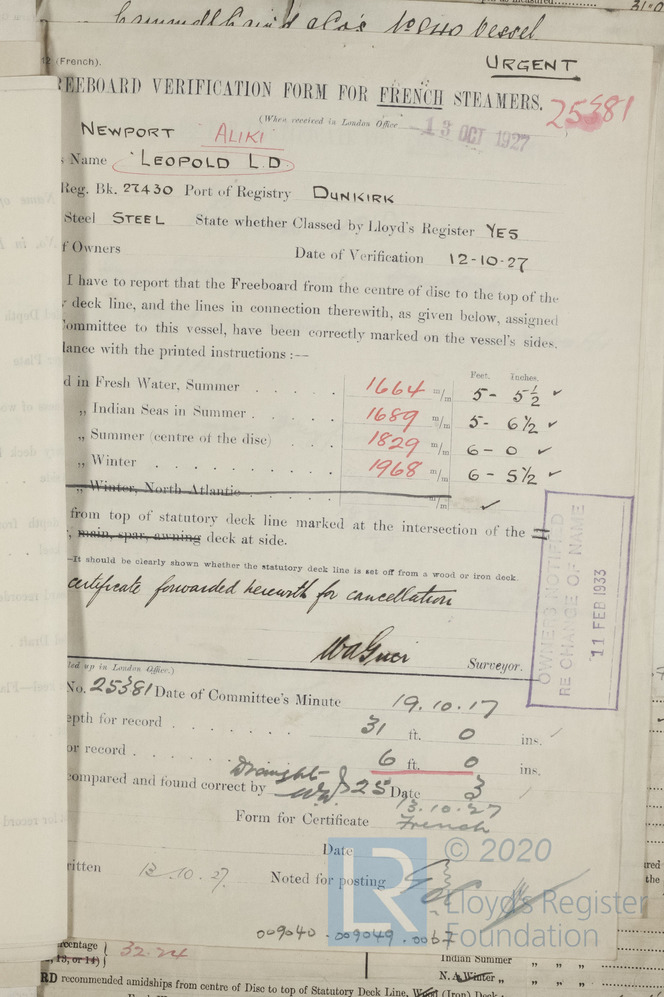 Vessel
12 (French).
URGENT
FREEBOARD VERIFICATION FORM FOR FRENCH STEAMERS.
25381
(When received in London Office
13 OCT 1927
NEWPORT ALIKI
s Name "LEOPOLD L.D
Reg. Bk. 27430 Port of Registry DUNKIRK
Steel STEEL State whether Classed by Lloyd's Register YES
f Owners Date of Verification 12-10-27
I have to report that the Freeboard from the centre of disc to the top of the
deck line, and the lines in connection therewith, as given below, assigned
Committee to this vessel, have been correctly marked on the vessel's sides,
dance with the printed instructions :--
Feet. Inches.
d in Fresh Water, Summer . . . . . 1664 m/m 5 - 5½ ✓
„ Indian Seas in Summer . . . . 1689 m/m 5- 6½ ✓
„ Summer (centre of the disc) . . 1829 m/m 6 - 0 ✓
„ Winter . . . . . . . . 1968 m/m 6 - 5½ ✓
„ Winter, North Atlantic . . . . m/m ✓
from top of statutory deck line marked at the intersection of the
, main, spar, awning deck at side.
—It should be clearly shown whether the statutory deck line is set off from a wood or iron deck.
certificate forwarded herewith for cancellation
OWNERS NOTIFIED
RE CHANGE OF NAME
11 FEB 1933
Surveyor.
led up in London Office.)
No. 25381 Date of Committee's Minute 19.10.17
epth for record . . . . . . . 31 ft. 0 ins.
or record . . . . . 6 ft. 0 ins.
Draught
compared and found correct by 25 Date 3
13.10.27
Form for Certificate French
Date
ritten 13.10.27. Noted for posting
© 2020
LR
Lloyd's Register
Foundation
009040 - 009049 - 0067
rcentage
, 13, or 14) 32.24
Indian Summer „ „ „
N. A. Winter „ „ „
RD recommended amidships from centre of Disc to top of Statutory Deck Line, Wood (Iron) Deck :